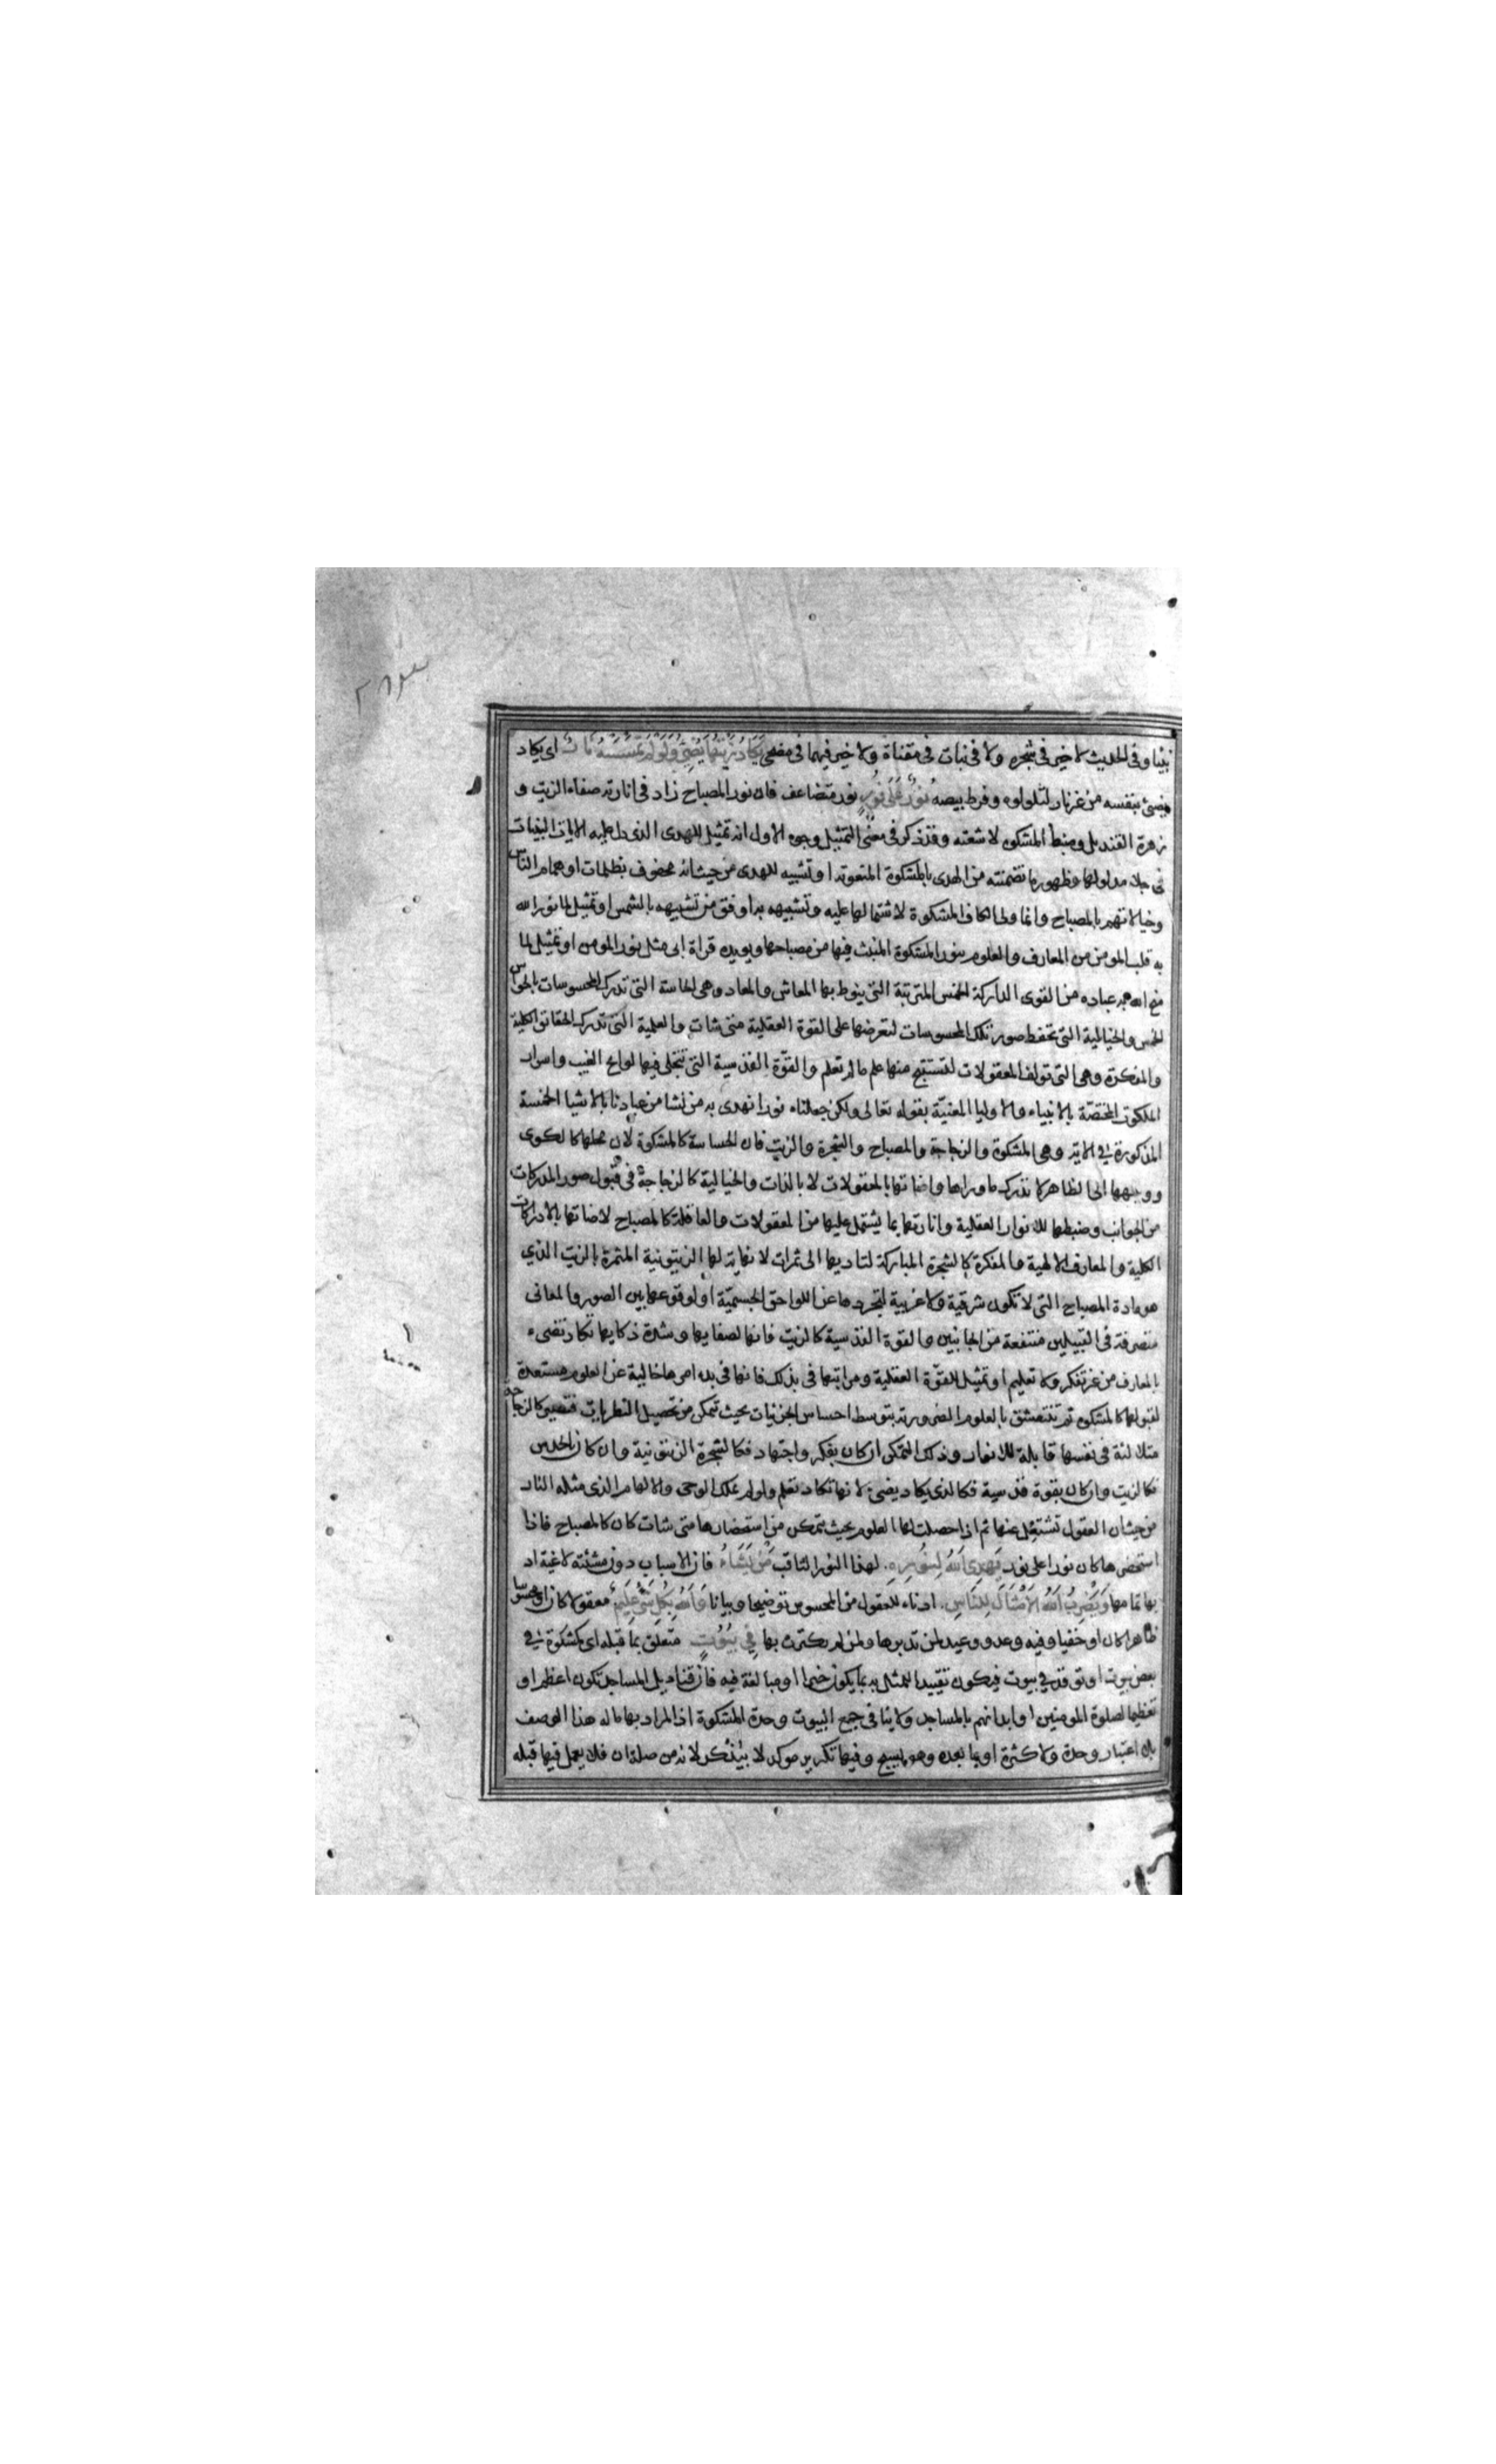 نيئا وفى الحديث لا خير فى شجره ولا فى نبات فى مقناة ولا خير فيهما فى مضحى يَكَادُ زَيْتُهَا يُضِئُ وَلَوْ لَمْ تَمْسَسْهُ نَارٌ اى يكاد
يضئ بنفسه من غير نار لتلولوه وفرط بيصه نُورٌ عَلَى نُورٍ نور متضاعف فان نور المصباح زاد فى انارته صفاء الزيت و
زهرة القنديل وضبط المشكوه لاشعته وقد ذكر فى معنى التمثيل وجوه الاول انه تمثيل للهدى الذى دل عليه الايات البينات
فى جلاء مدلولها وظهور ما تضمنته من الهدى بالمشكوة المنعوتة او تشبيه للهدى من حيث انه محفوف بظلمات اوهام الناس
وخيالاتهم بالمصباح وانما ولى الكاف المشكوة لاشتمالها عليه وتشبيهه به اوفق من تشبيهه بالشمس او تمثيل لما نور الله
به قلب المومن من المعارف والعلوم بنور المشكوة المنبث فيها من مصباحها ويويده قراة ابى مثل نور المومن او تمثيل لما
منح الله به عباده من القوى الداركة الخمس المترتبة التى ينوط بها المعاش والمعاد وهى الحاسة التى تدرك المحسوسات بالحواس
الخمس والخيالية التى تحفظ صور تلك المحسوسات لتعرضها على القوة العقلية متى شات والعلمية التى تدرك الحقائق الكلية
والمفكرة وهى التى تولف المعقولات لتستنتج منها علم ما لم تعلم والقوّة القدسية التى تتجلى فيها لوايح الغيب واسرار
الملكوت المختصّة بالانبياء والاوليا المعنيّة بقوله تعالى ولكن جعلناه نورا نهدى به من نشا من عبادنا بالاشيا الخمسة
المذكورة فى الاية وهى المشكوة والزجاجة والمصباح والشجرة والزيت فان الحساسة كالمشكوة لان محلها كالكوى
ووجهها الى الظاهر لا تدرك ما وراها واضاتها بالمعقولات لا بالذات والخيالية كالزجاجة فى قبول صور المدركات
من الجوانب وضبطها للانوار العقلية وانارتها بما يشتمل عليها من المعقولات والعاقلة كالمصباح لاضاتها بالادراكات
الكلية والمعارف الالهية والمفكرة كالشجرة المباركة لتاديها الى ثمرات لا نهاية لها الزيتونية المثمرة بالزيت الذي
هو مادة المصباح التى لا تكون شرقية ولا غربية لتجردها عن اللواحق الجسميّة او لوقوعها بين الصور والمعانى
متصرفة فى القبيلين منتفعة من الجانبين والقوة القدسية كالزيت فانها لصفايها وشدة ذكايها تكاد تضىء
بالمعارف من غير تفكر ولا تعليم او تمثيل للقوّة العقلية ومراتبها فى بذلك فانها فى بدء امرها خالية عن العلوم مستعدة
لقبولها كالمشكوه ثم تنتقش بالعلوم الضرورية بتوسط احساس الجزئيات بحيث تتمكن من تحصيل النظريات فتصير كالزجاجة
متلالئة فى نفسها قابلة للانوار وذلك التمكن ان كان بفكر واجتهاد فكالشجرة الزيتونية وان كان بالحدس
فكالزيت وان كان بقوة قدسية فكالذى يكاد يضئ لانها تكاد تعلم ولو لم ملك الوحى والالهام الذى مثله النار
من حيث ان العقول تشتعل عنها ثم اذا حصلت لها العلوم بحيث تتمكن من استحضارها متى شات كان كالمصباح فاذا
استحضرها كان نورا على نور يَهْدِى اللهُ لِنُورِهِ لهذا النور الثاقب مَنْ يَشَاءُ فان الاسباب دون مشئته لاغية اذ
بها تمامها وَيَضْرِبُ اللهُ الاَمْثَالَ لِلنَّاسِ ادناء للعقول من المحسوس توضيحا وبيانا وَاللهُ بِكُلِّ شَئٍ عَلِيمٌ معقولا كان او محسوسا
ظاهرا كان او خفيا وفيه وعد ووعيد لمن تدبرها ولمن لم يكترث بها فِى بُيُوتٍ متعلق بما قبله اى كمشكوة فى
بعض بيوت او توقد فى بيوت فيكون تقييدا للممثل به بما يكون خيرا او مبالغة فيه فان قناديل المساجد تكون اعظم او
تعظيما لصلوة المومنين او ابدانهم بالمساجد ولا ينافى جمع البيوت وحدة المشكوة اذ المراد بها ما له هذا الوصف
بلا اعتبار وحدة ولا كثرة او بما بعده وهو يسبح وفيها تكرير موكد لا بيذكر لانه من صلة ان فلا يعمل فيما قبله